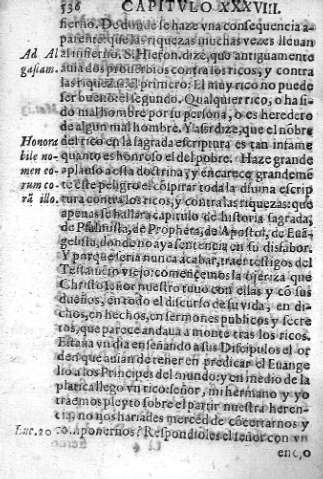 536 CAPITVLO XXXVIII.
fierno. De donde se haze vna consequencia a-
parente: que las riquezas muchas vezes lleuan
Ad Al al infierno. S. Hieron. dize, que antiguamente
gasiam. auia dos prouerbios contra los ricos, y contra
las riquezas: el primero: El muy rico no puede
ser bueno: el segundo. Qualquier rico, o ha si-
do mal hombre por su persona, o es heredero
de algun mal hombre. Y assi dize, que el nõbre
Honora del rico en la sagrada escriptura es tan infame
bile no- quanto es honroso el del pobre. Haze grande
men co- aplauso a esta doctrina, y encarece grandemẽ
rum co- te este peligro el cõspirar toda la diuina escrip
rã illo. tura contra los ricos, y contra las riquezas: que
apenas se hallara capitulo de historia sagrada,
de Psalmista, de Propheta, de Apostol, de Euã-
gelista, donde no aya sentencia en su disfabor.
Y porque seria nunca acabar, traer testigos del
Testamẽto viejo: comencemos la ojeriza que
Christo Señor nuestro tuuo con ellas y cõ sus
dueños, en todo el discurso de su vida, en di-
chos, en hechos, en sermones publicos y secre
tos, que parece andaua a monte tras los ricos.
Estaua vn dia enseñando a sus Discipulos el or
den que auian de tener en predicar el Euange
lio a los Principes del mundo: y en medio de la
platica llego vn rico: señor, mi hermano y yo
traemos pleyto sobre el partir nuestra heren-
cia, no nos hariades merced de cõcertarnos y
Luc. 20 cõponernos? Respondioles el señor con vn
enc,o